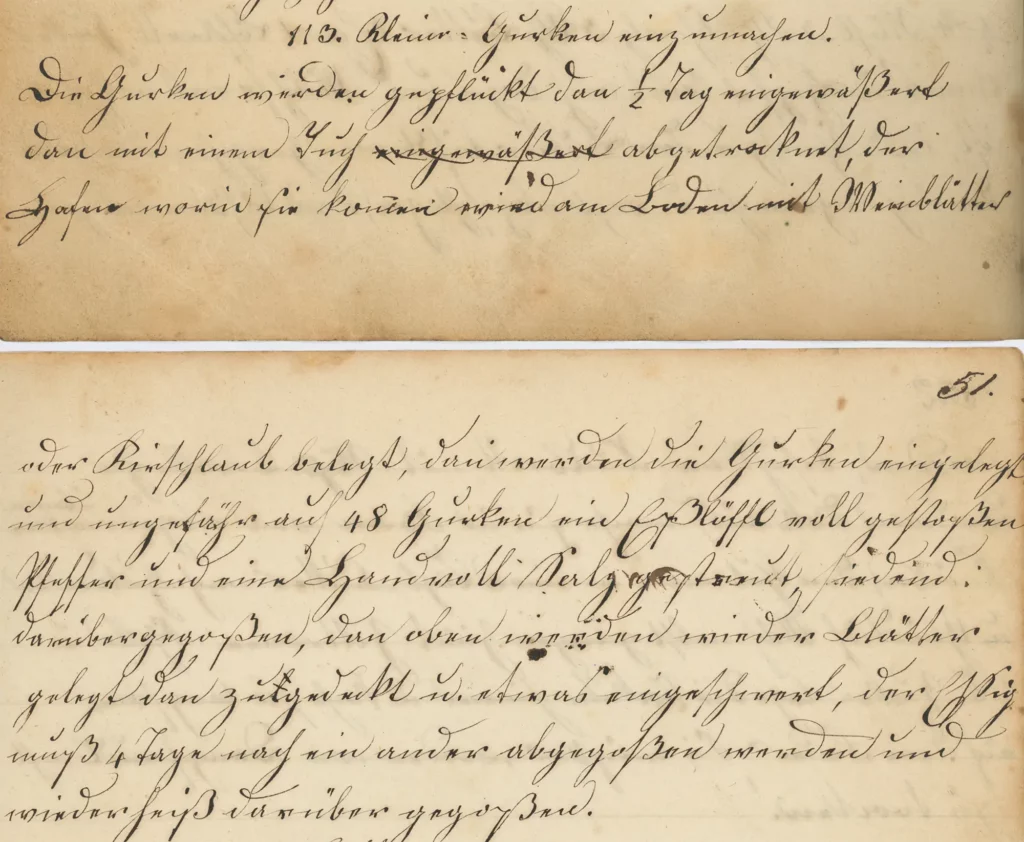 113. Kleine=Gurken einzumachen.
Die Gurken werden gepflückt dan ½ Tag eingewäßert
dan mit einem Tuch eingewäßert abgetrocknet, der
Hafen worin sie kom̄en wird am Boden mit Weinblätter
51.
oder Kirschlaub belegt, dan werden die Gurken eingelegt
und ungefähr auf 48 Gurken ein Eßlöffl voll gestoßen
Pfeffer und eine Handvoll Salz gestreut, siedend:
darübergegoßen, dan oben werden wieder Blätter
gelegt dan zugedeckt u. etwas eingeschwert, der Essig
muß 4 Tage nach ein ander abgegoßen werden und
wieder heiß darüber gegoßen.